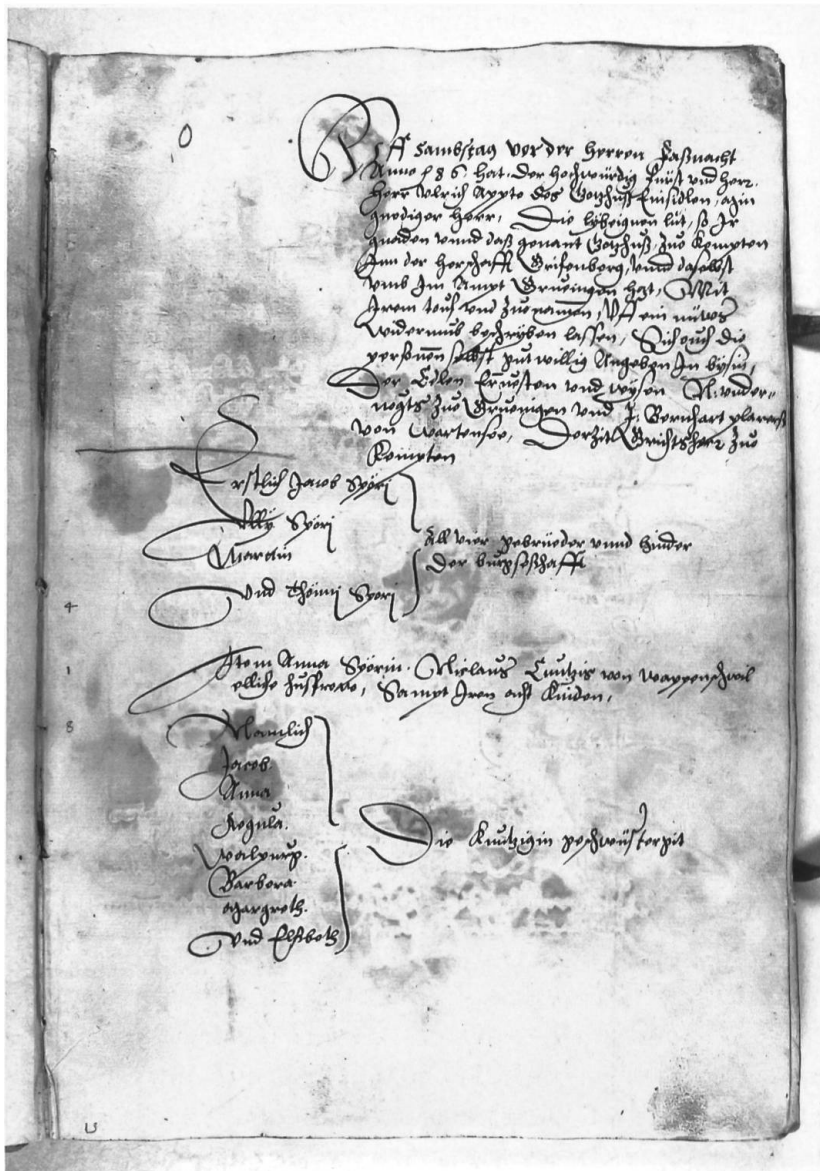 0
Vff Sambstag vor der Herren Faßnacht
Anno 86 hat der hochwürdig Fürst vnd Herr
Herr Vlrich Appte des Gotzhuß Einsidlen, min
gnediger Herr, Die lybeignen lüt, so Jr
gnaden vnnd daß genant Gotzhuß, zuo Kempten
Jnn der Herschafft Griffenberg, vnnd daselbst
vmb Jm Ampt Grueningen hat, Mit
Jrem touf vnd zuonammen, Vff ein nüws
widerumb beschryben lassen, Sich ouch die
personen selbst guttwillig Angeben Jn bysin,
Der Edlen Ernuesten vnd wysen N: vnder-
uogts zuo Grueningen vnd J: Bernhart plarers
von Wartensee, Der Zit Grichtsherr zuo
Kempten
Erstlich Jacob Spöri
Ally Spöri
Martin
All vier gebrüeder vnnd hinder
der burgseßhafft
4
Vnd Thöni Spöri
1
Jtem Anna Spörin. Niclaus Cuntzis von Wappenschwil
elliche husfrow, Sampt Jren acht Kinden,
8
Namlich
Jacob.
Anna
Regula.
Die Kuntzigin geschwüstergit
Walpurg.
Barbara.
Margreth.
Vnd Elsbeth